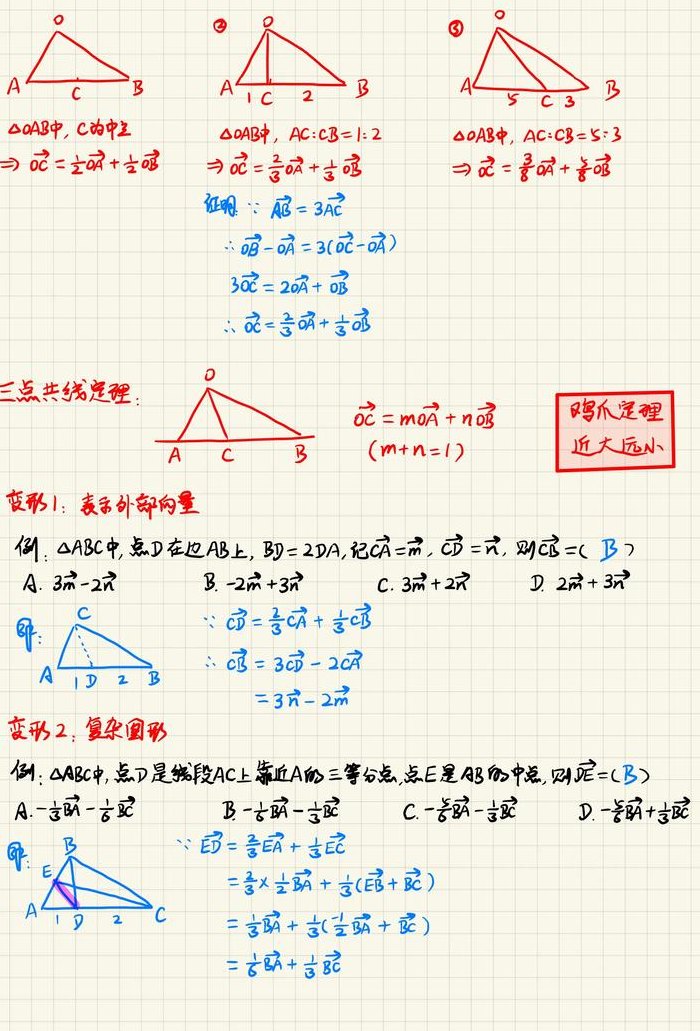 O ② O ③ O
A C B A 1 C 2 B A 5 C 3 B
△OAB中, C为中点 △OAB中, AC:CB=1:2 △OAB中, AC:CB=5:3
⇒ \vec{OC}=\frac{1}{2}\vec{OA}+\frac{1}{2}\vec{OB} ⇒ \vec{OC}=\frac{2}{3}\vec{OA}+\frac{1}{3}\vec{OB} ⇒ \vec{OC}=\frac{3}{8}\vec{OA}+\frac{5}{8}\vec{OB}
证明: ∵ \vec{AB}=3\vec{AC}
∴ \vec{OB}-\vec{OA}=3(\vec{OC}-\vec{OA})
3\vec{OC}=2\vec{OA}+\vec{OB}
∴ \vec{OC}=\frac{2}{3}\vec{OA}+\frac{1}{3}\vec{OB}
三点共线定理:
O
A C B
\vec{OC}=m\vec{OA}+n\vec{OB}
(m+n=1)
鸡爪定理
近大远小
变形1: 表示外部向量
例: △ABC中, 点D在边AB上, BD=2DA, 记\vec{CA}=\vec{m}, \vec{CD}=\vec{n}, 则\vec{CB}=( B )
A. 3\vec{m}-2\vec{n} B. -2\vec{m}+3\vec{n} C. 3\vec{m}+2\vec{n} D. 2\vec{m}+3\vec{n}
即:
C
A 1 D 2 B
∵ \vec{CD}=\frac{2}{3}\vec{CA}+\frac{1}{3}\vec{CB}
∴ \vec{CB}=3\vec{CD}-2\vec{CA}
=3\vec{n}-2\vec{m}
变形2: 复杂图形
例: △ABC中, 点D是线段AC上靠近A的三等分点, 点E是AB的中点, 则\vec{DE}=( B )
A. -\frac{1}{3}\vec{BA}-\frac{1}{6}\vec{BC} B. -\frac{1}{6}\vec{BA}-\frac{1}{3}\vec{BC} C. -\frac{5}{6}\vec{BA}-\frac{1}{3}\vec{BC} D. -\frac{5}{6}\vec{BA}+\frac{1}{3}\vec{BC}
即:
B
E
A 1 D 2 C
∵ \vec{ED}=\frac{2}{3}\vec{EA}+\frac{1}{3}\vec{EC}
=\frac{2}{3}×\frac{1}{2}\vec{BA}+\frac{1}{3}(\vec{EB}+\vec{BC})
=\frac{1}{3}\vec{BA}+\frac{1}{3}(\frac{-1}{2}\vec{BA}+\vec{BC})
=\frac{1}{6}\vec{BA}+\frac{1}{3}\vec{BC}